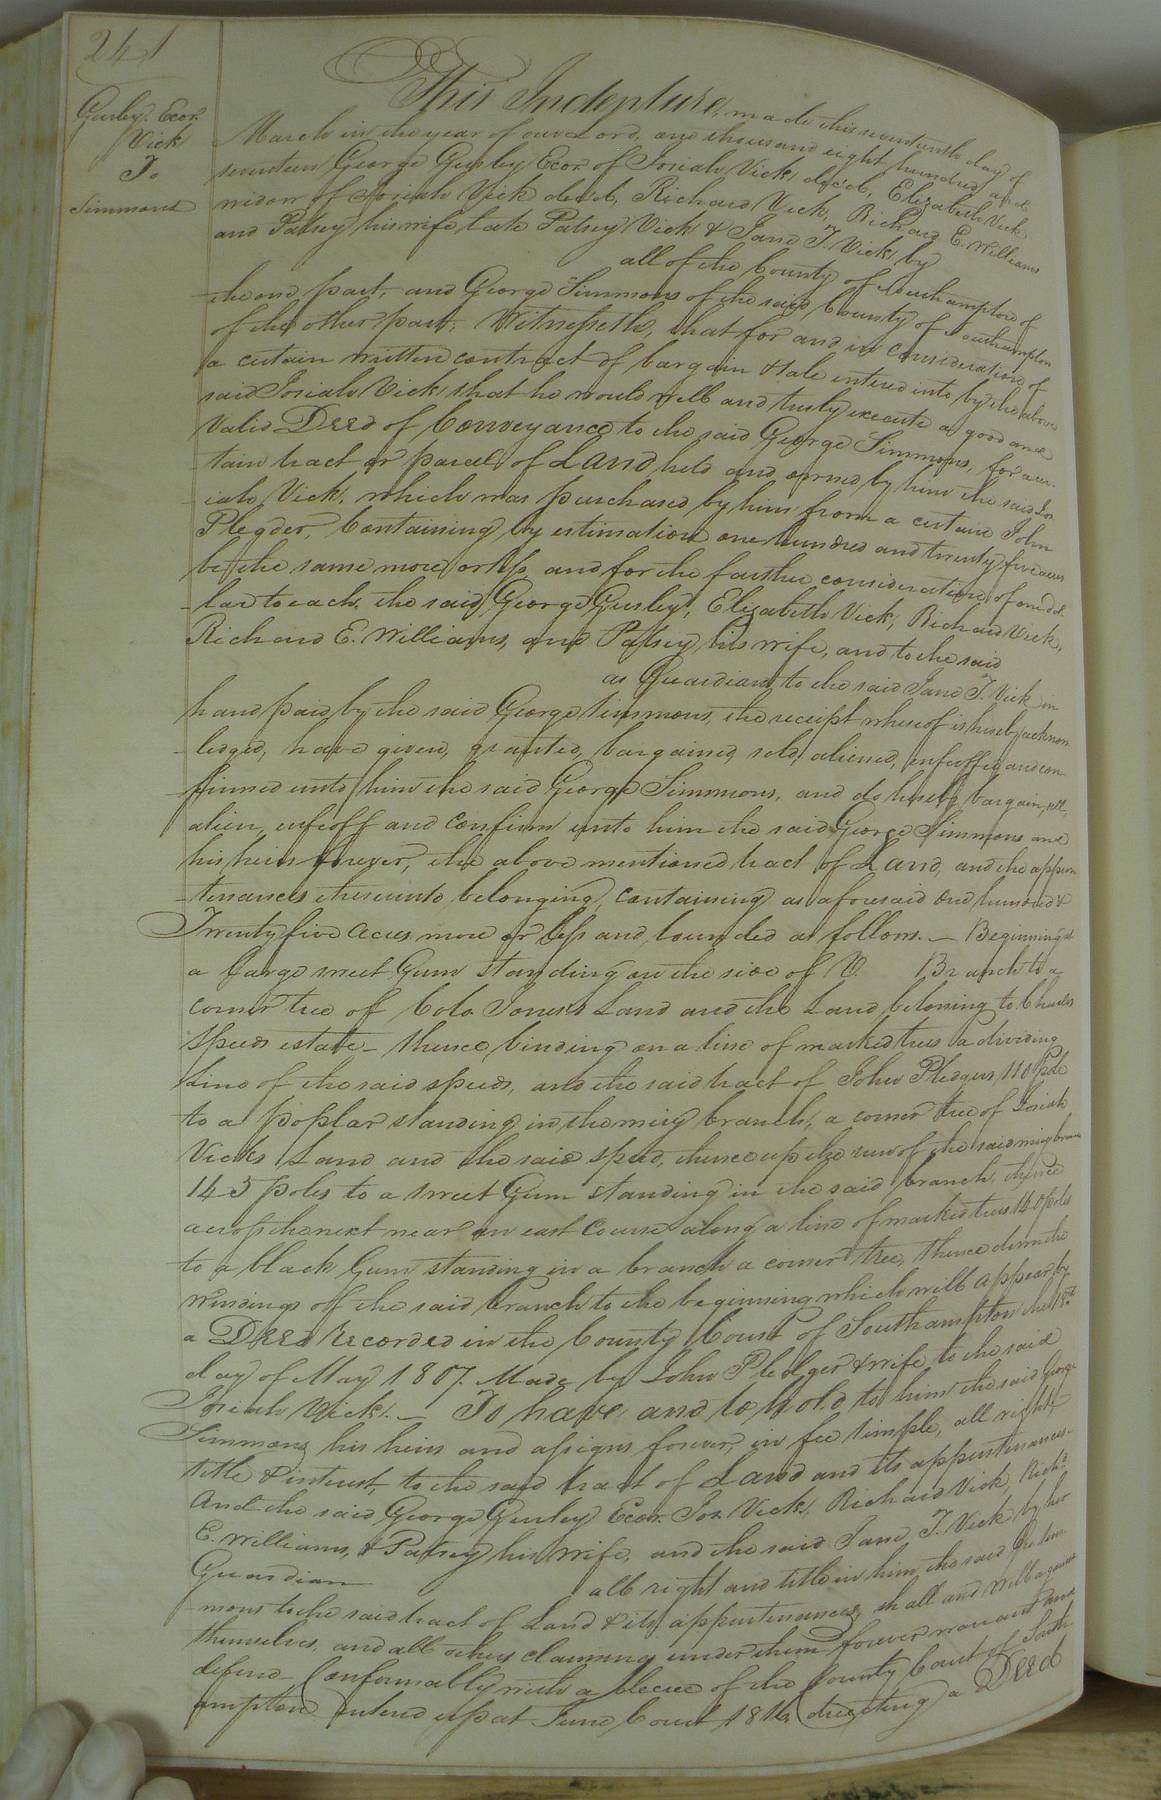 241
Gurley Ecor.
Vick
To
Simmons
This Indenture, made this seventeenth day of
March in the year of our Lord, one thousand eight hundred and
seventeen George Gurley Ecor of Josiah Vick dec'd, Elizabeth Vick
widow of Josiah Vick decd, Richard Vick, Richard E. Williams
and Patsey his wife, late Patsey Vick & Jane T. Vick by
all of the County of Southampton of
the one part, and George Simmons of the said County of Southampton
of the other part, Witnesseth, that for and in consideration of
a certain written contract of bargain & sale entered into by the above
said Josiah Vick that he would well and truly execute a good and
Valid Deed of Conveyance to the said George Simmons, for a cer-
tain tract or parcel of Land held and owned by him the said Jos
iah Vick, which was purchased by him from a certain John
Plegder, Containing by estimation one hundred and twenty five acres
be the same more or less and for the farther consideration of one dol
lar to each, the said George Gurley, Elizabeth Vick, Richard Vick,
Richard E. Williams, and Patsey his wife, and to the said
as Guardian to the said Jane T. Vick in
hand paid by the said George Simmons, the receipt whereof is hereby acknow
ledged, have given, granted, bargained, sold, aliened, enfeoffed and con
firmed unto him the said George Simmons, and do hereby bargain, sell,
alien, enfeoff and confirm unto him the said George Simmons and
his heirs forever, the above mentioned tract of Land, and the appur
tenances thereunto belonging, containing as aforesaid one hundred &
Twenty five acres more or less and bounded as follows. — Beginning at
a large sweet Gum standing on the side of V. Branch to a
corner tree of Colo Jones's Land and the Land beloning to Charles
Speeds estate — thence binding on a line of marked trees a dividing
Line of the said speeds, and the said tract of John Pledgers 110 Pole
to a poplar standing in the miry branch, a corner tree of Josiah
Vicks Land and the said speed, thence up the run of the said miry branch
145 poles to a sweet Gum standing in the said branch, thence
across the neck near an east Course along a line of marked trees 140 poles
to a black Gum standing in a branch a corner tree, thence down the
windings off the said branch to the beginning which will appear by
a Deed recorded in the County Court of Southampton the 18th
day of May 1807. Made by John Pledger & wife to the said
Josiah Vick. — To have and to hold to him the said George
Simmons his heirs and assigns forever, in fee simple, all right,
title & interest, to the said tract of Land and its appurtenances.
And the said George Gurley Ecor. Jos. Vick, Richard Vick, Richd.
E. Williams, & Patsey his wife, and the said Jane T. Vick by her
Guardian all right and title in him, the said Geo Sim
mons to the said tract of Land & its appurtenances, shall and will against
themselves, and all others claiming under them forever warrant and
defend — Conformably with a decree of the County Court of South
ampton entered up at June Court 1816 directing a Deed